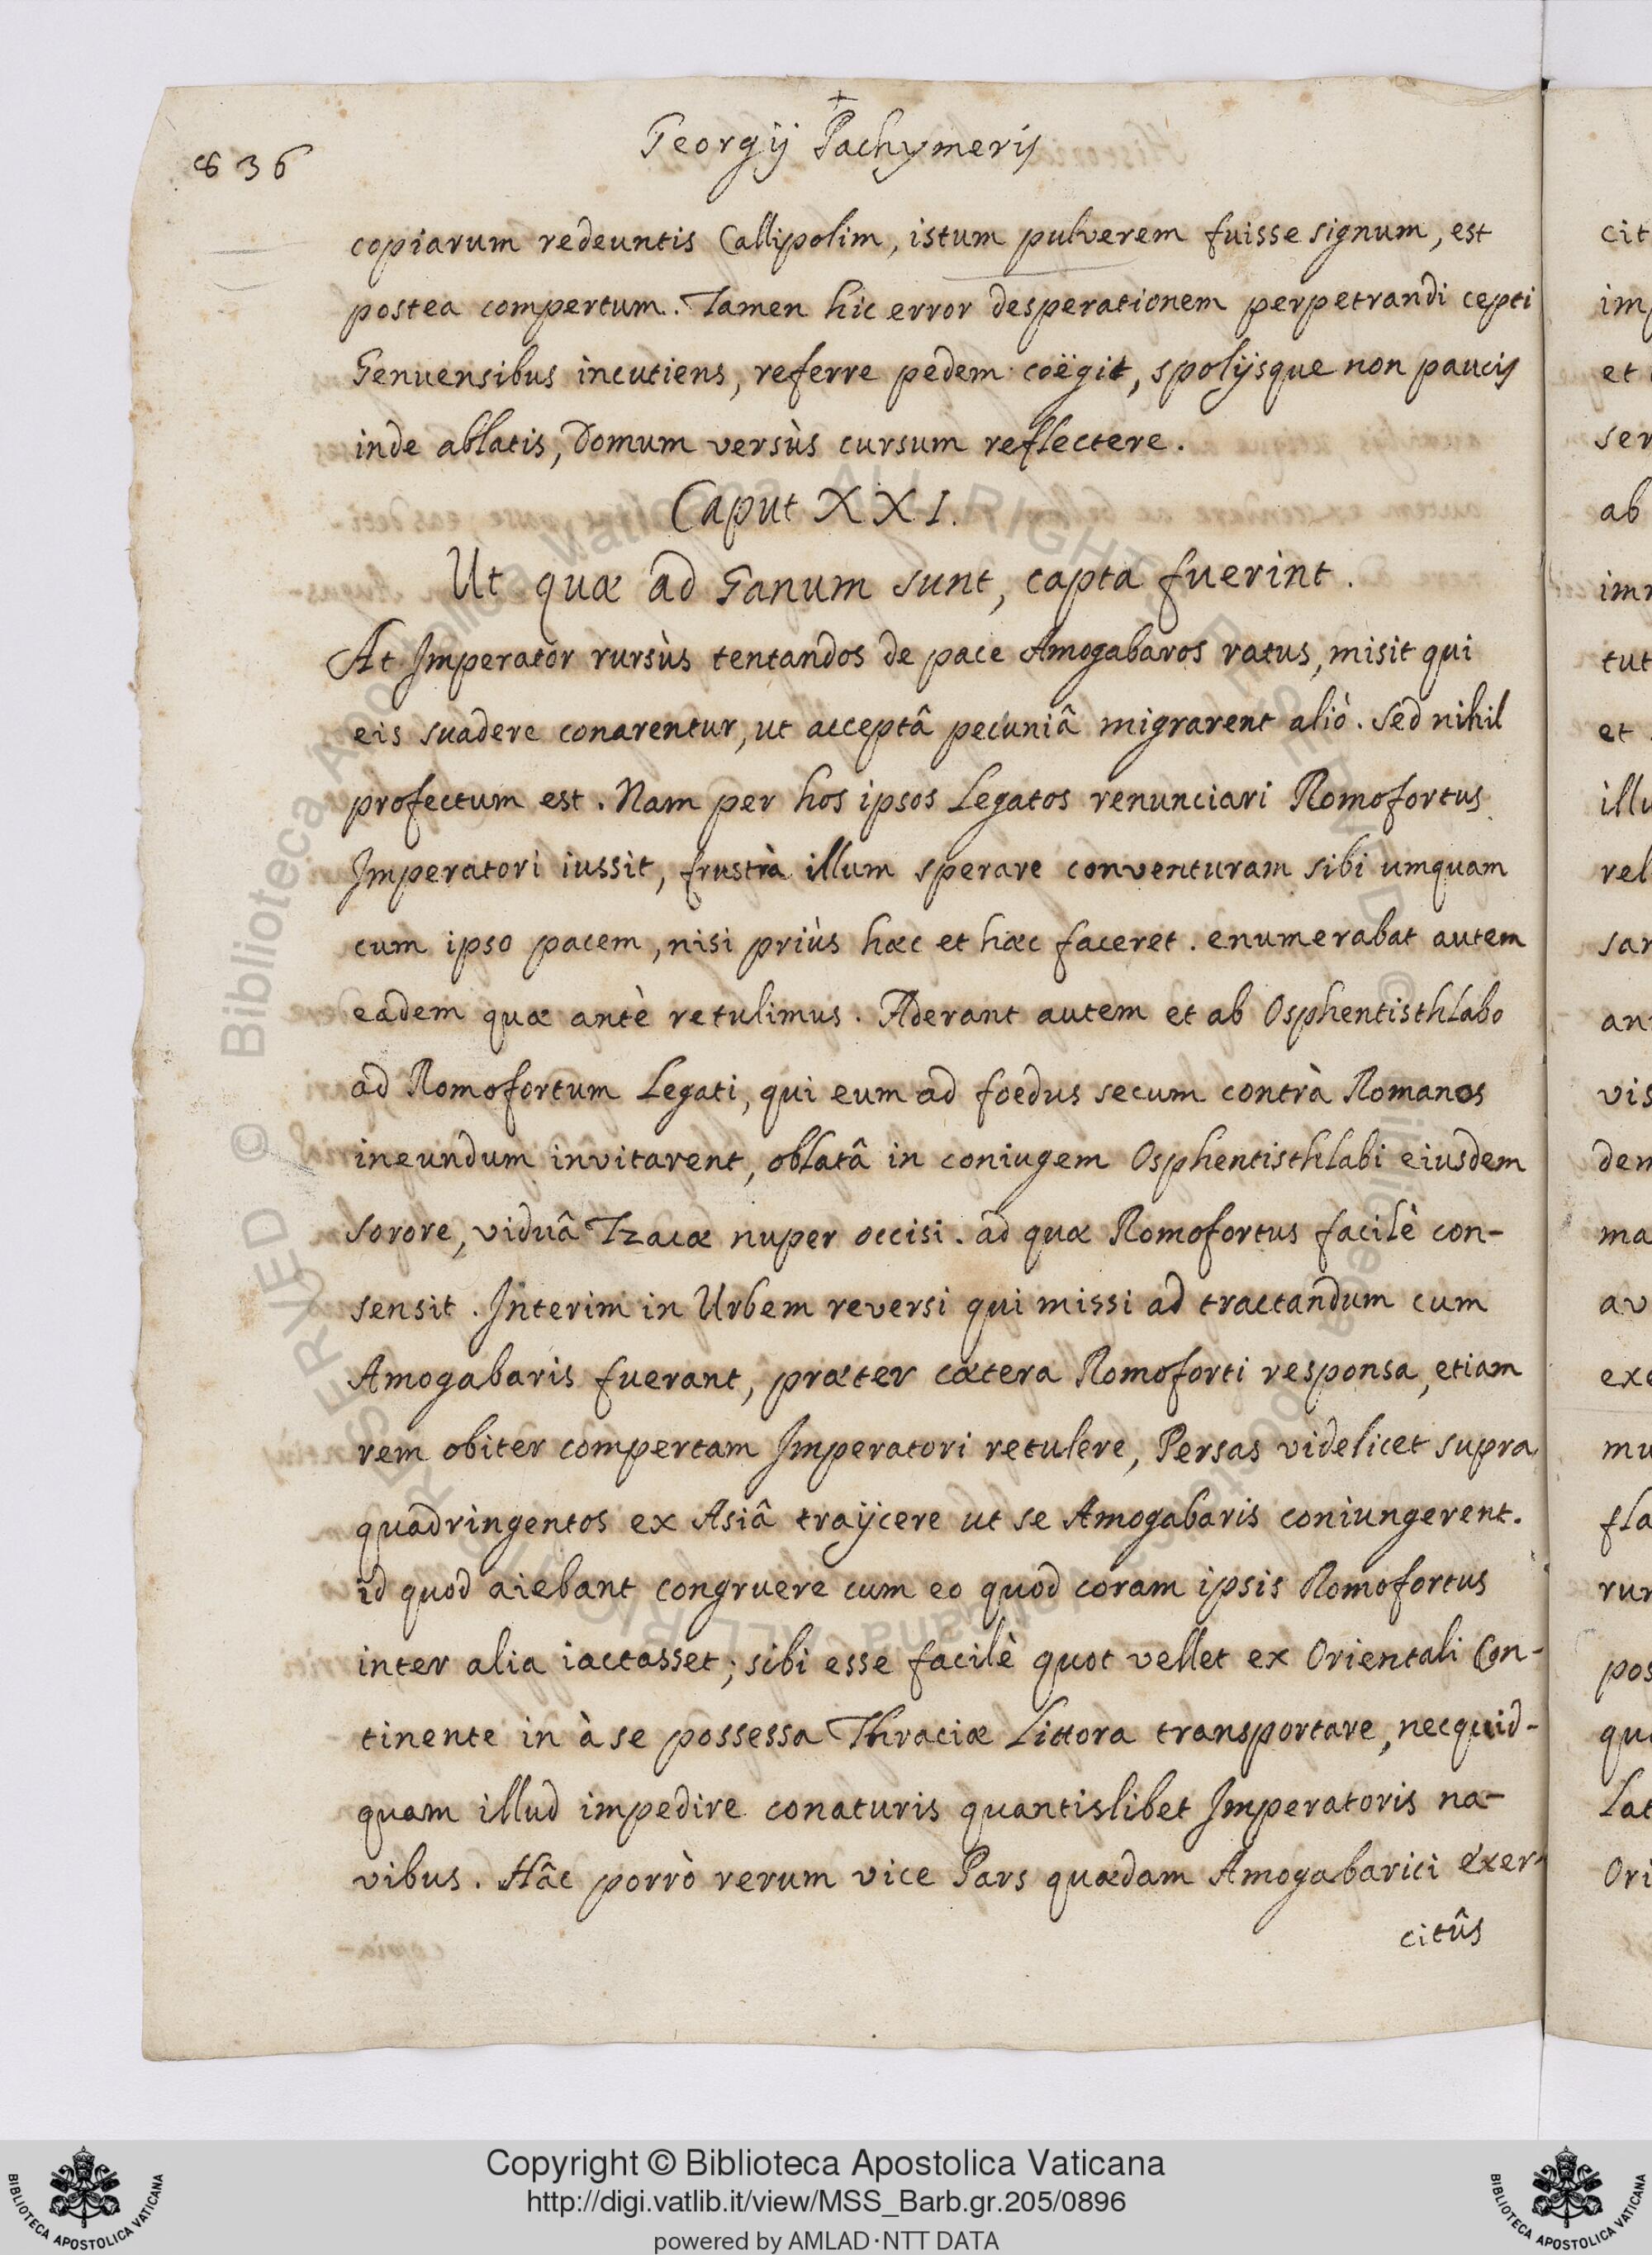 +
836
Georgij Pachymeris
copiarum redeuntis Callipolim, istum pulverem fuisse signum, est
postea compertum. Tamen hic error desperationem perpetrandi cepti
Genuensibus incutiens, referre pedem coëgit, spolijsque non paucis
inde ablatis, Domum versùs cursum reflectere.
Caput XXI.
Ut quæ ad Ganum sunt, capta fuerint.
At Imperator rursùs tentandos de pace Amogabaros ratus, misit qui
eis suadere conarentur, ut acceptâ pecuniâ migrarent aliò. Sed nihil
profectum est. Nam per hos ipsos Legatos renunciari Romofortus
Imperatori iussit, frustrà illum sperare conventuram sibi umquam
cum ipso pacem, nisi priùs hæc et hæc faceret. enumerabat autem
eadem quæ antè retulimus. Aderant autem et ab Osphentisthlabo
ad Romofortum Legati, qui eum ad foedus secum contrà Romanos
ineundum invitarent, oblatâ in coniugem Osphentisthlabi eiusdem
sorore, viduâ Tzacæ nuper occisi. ad quæ Romofortus facilè con-
sensit. Interim in Urbem reversi qui missi ad tractandum cum
Amogabaris fuerant, præter cætera Romoforti responsa, etiam
rem obiter compertam Imperatori retulere, Persas videlicet supra
quadringentos ex Asiâ traijcere ut se Amogabaris coniungerent.
id quod aiebant congruere cum eo quod coram ipsis Romofortus
inter alia iactasset; sibi esse facilè quot vellet ex Orientali Con-
tinente in à se possessa Thraciæ Littora transportare, necquid-
quam illud impedire conaturis quantislibet Imperatoris na-
vibus. Hâc porrò rerum vice Pars quædam Amogabarici exer-
citûs
cit
im
et
ser
ab
tut
et
rel
vis
ma
av
mu
fla
pos
Lat
Ori
Copyright © Biblioteca Apostolica Vaticana
http://digi.vatlib.it/view/MSS_Barb.gr.205/0896
powered by AMLAD·NTT DATA
BIBLIOTECA APOSTOLICA VATICANA
BIBLIOTECA APOSTOLICA VATICANA
© Biblioteca Apostolica Vaticana ALL RIGHTS RESERVED
© Biblioteca Apostolica Vaticana ALL RIGHTS RESERVED